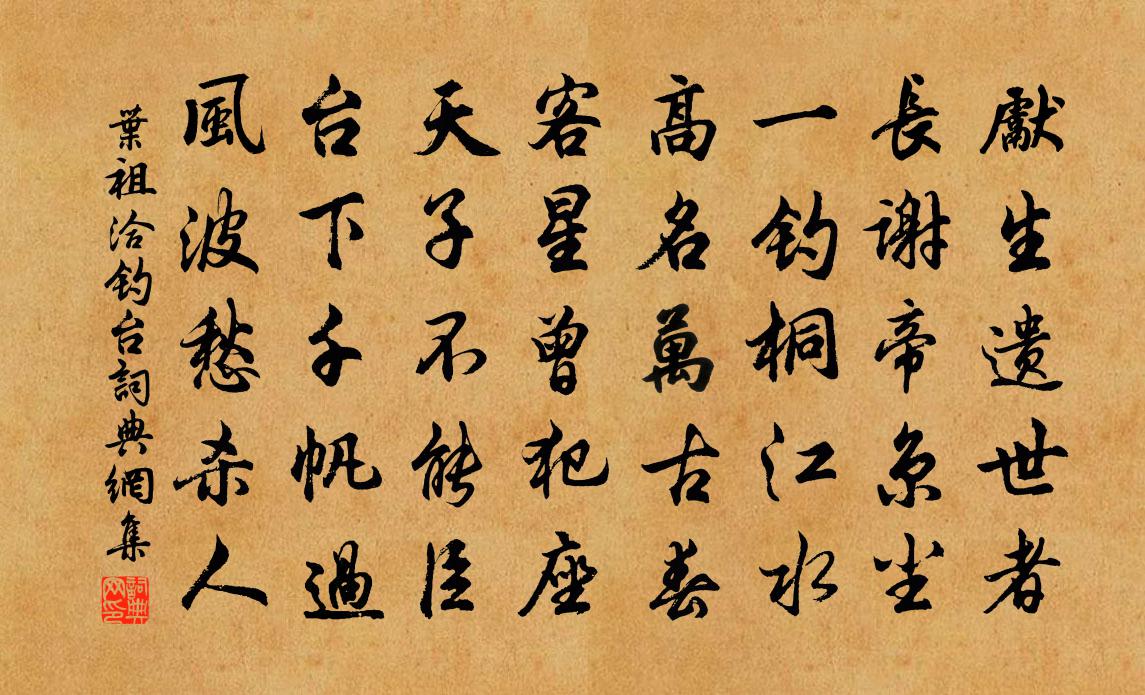 獻生遗世者
長謝帝京尘
一钓桐江水
髙名萬古春
客星曾犯座
天子不能臣
台下千帆過
風波愁杀人
葉祖洽钓台詞典網集
詞典网印